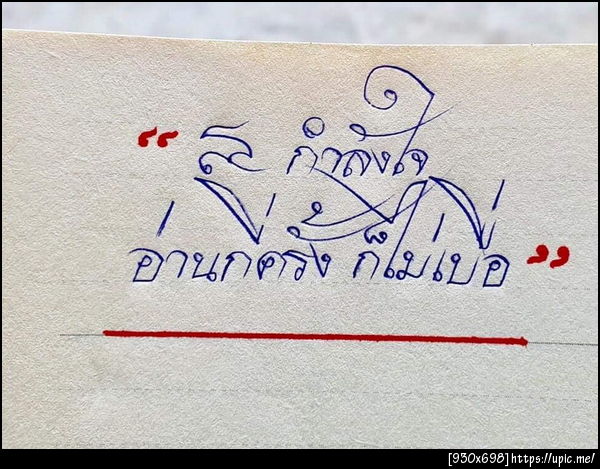 “ ๕ กำลังใจ
อ่านกี่ครั้ง ก็ไม่เบื่อ ”
[930x698]https://upic.me/